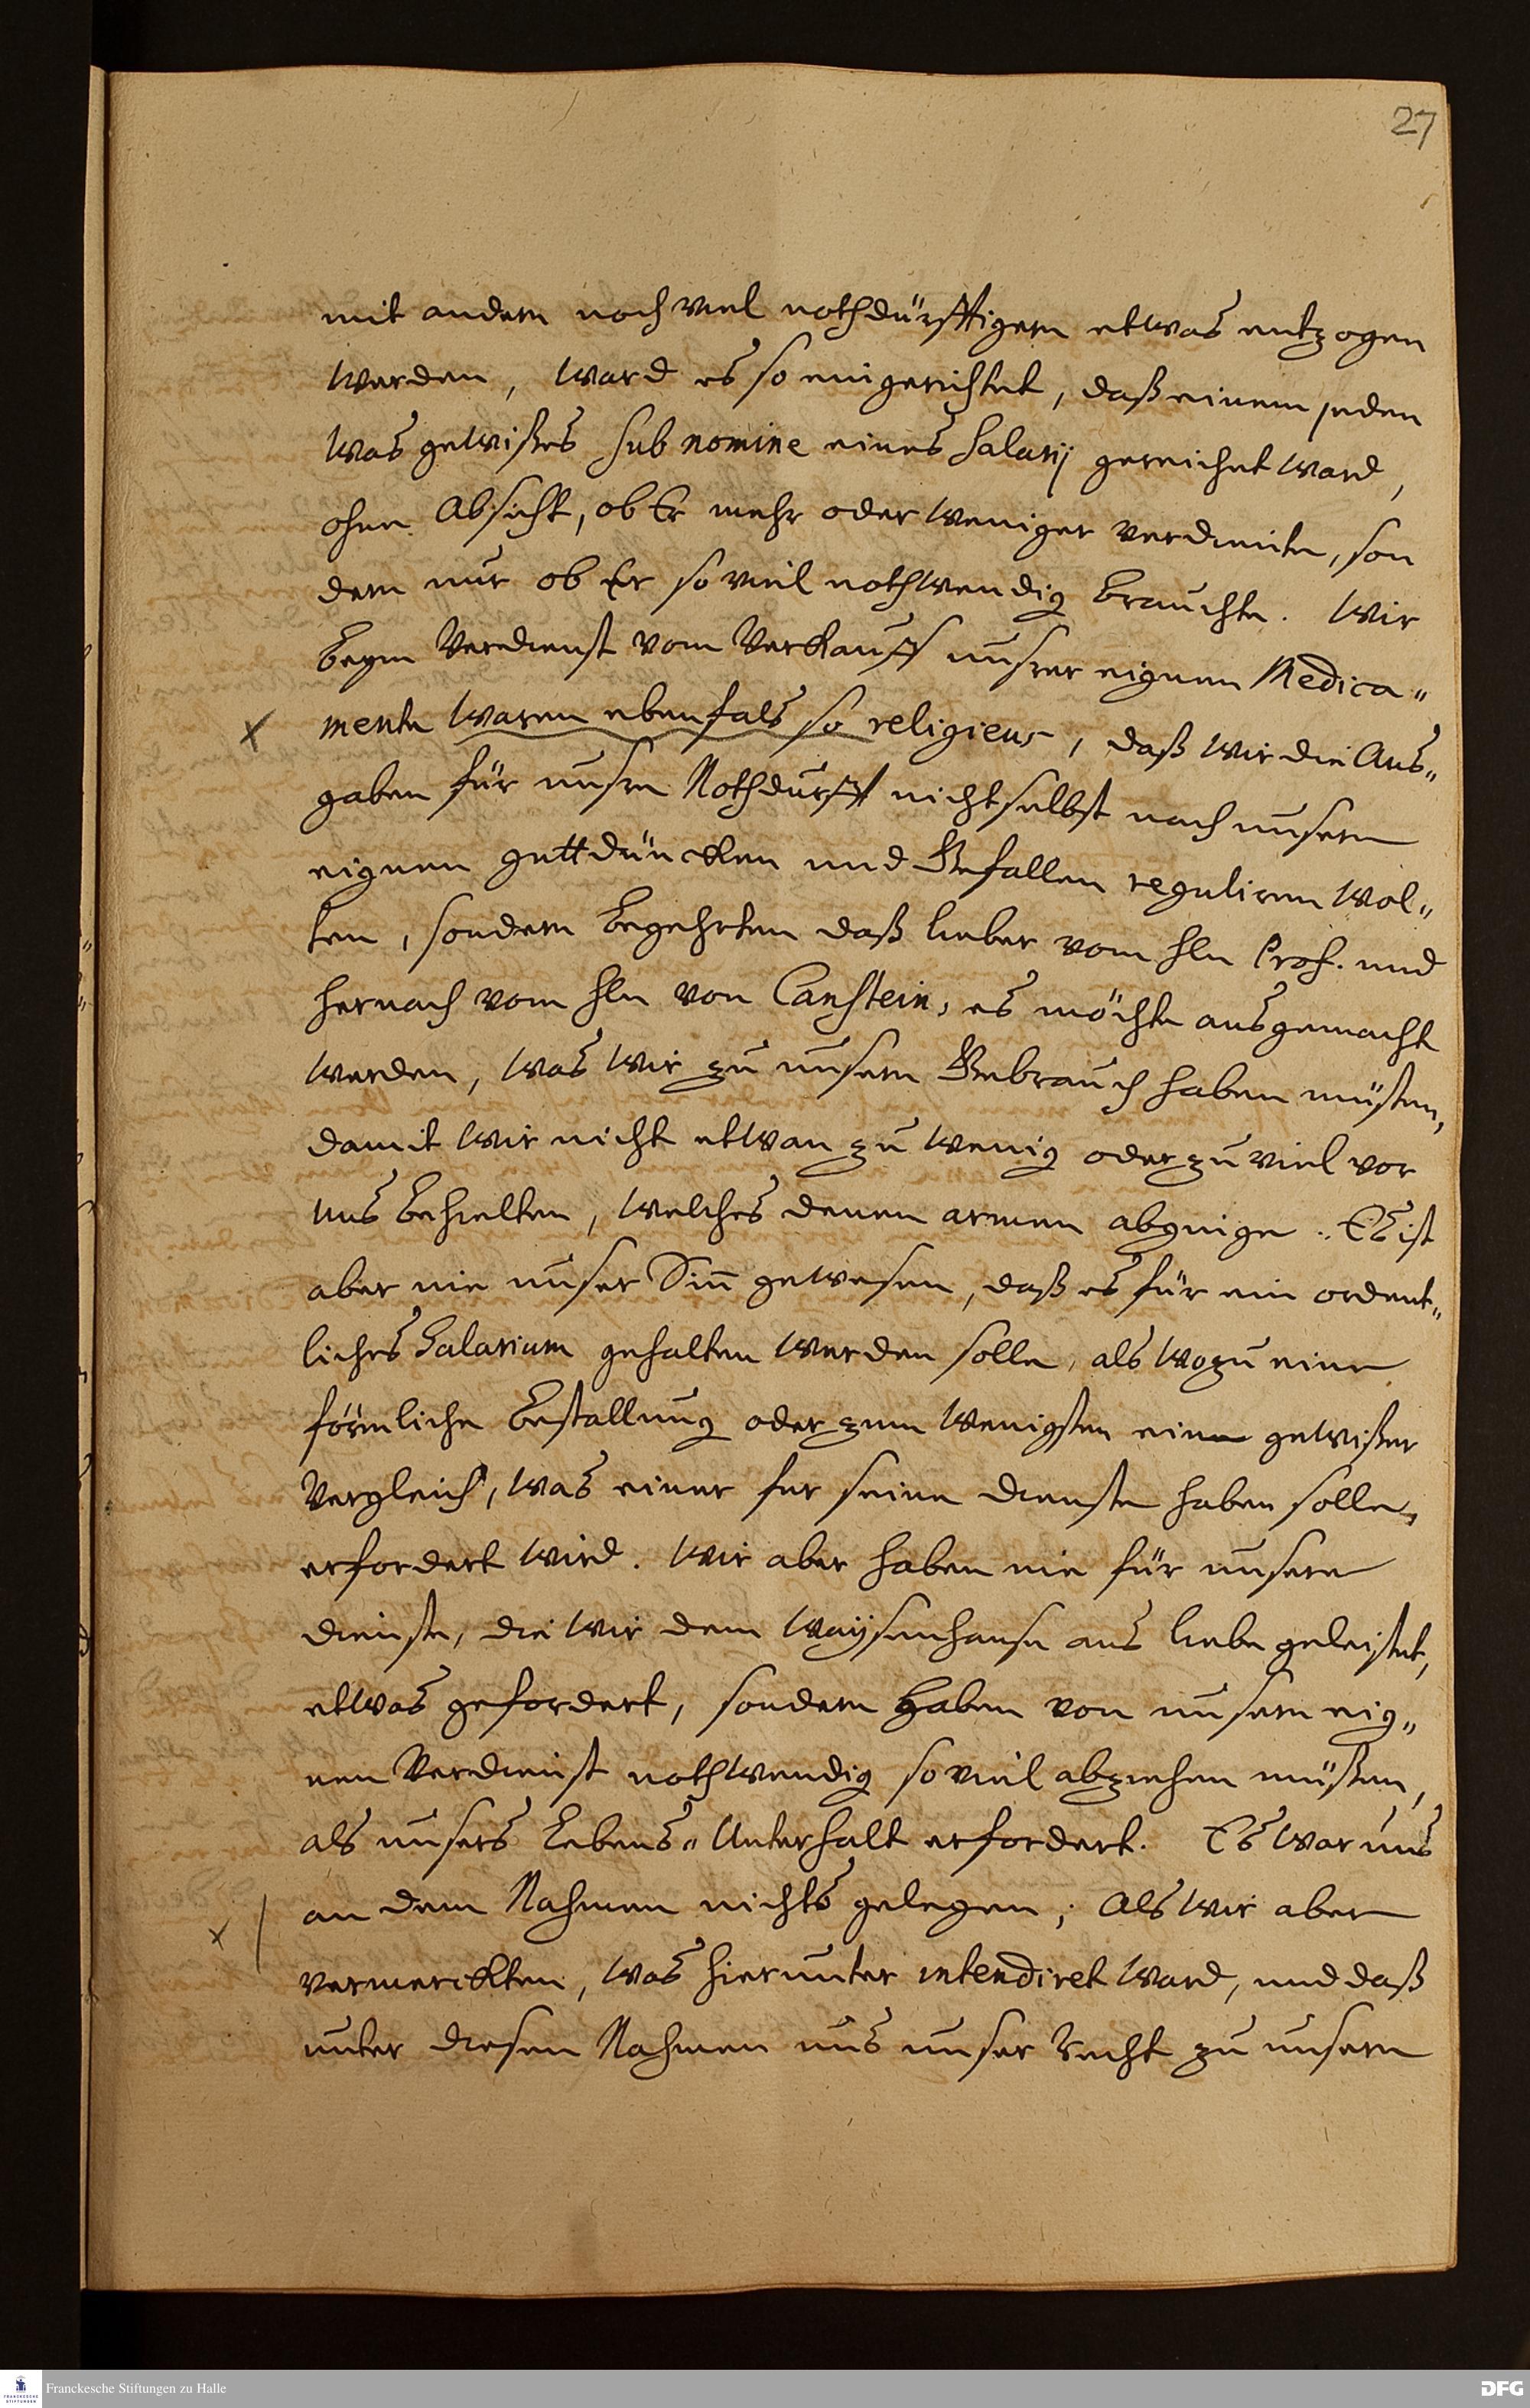 27
mit andern noch viel nothdürfftigern etwas entzogen
werden, ward es so eingerichtet, daß einem jeden
was gewißes sub nomine eines Salarij gereichet ward,
ohne Absicht, ob Er mehr oder weniger verdiente, son
dern nur ob Er so viel nothwendig brauchte. Wir
beym Verdienst vom Verkauff unsrer eignen Medica„
mente waren ebenfals so religieus, daß wir die Aus„
gaben für unsre Nothdurfft nicht selbst nach unserm
eignen guttdüncken und Gefallen reguliren wol„
ten, sondern begehrten daß lieber vom Hln Prof. und
hernach vom Hln von Canstein, es möchte ausgemacht
werden, was wir zu unserm Gebrauch haben müsten,
damit wir nicht etwan zu wenig oder zu viel vor
uns behielten, welches denen armen abginge. Es ist
aber nie unser Sin̄ gewesen, daß es für ein ordent„
liches Salarium gehalten werden solle, als wozu eine
förmliche bestallung oder zum wenigsten ein gewißer
Vergleich, was einer fur seine dienste haben solle,
erfordert wird. Wir aber haben nie für unsere
dienste, die wir dem Waysenhause aus liebe geleistet,
etwas gefordert, sondern haben von unserm eig„
nen Verdienst nothwendig so viel abziehen müßen,
als unsers Lebens„Unterhalt erfordert. Es war uns
an dem Nahmen nichts gelegen; Als wir aber
vermerckten, was hierunter intendiret ward, und daß
unter diesen Nahmen uns unser Recht zu unserm
Franckesche Stiftungen zu Halle
DFG